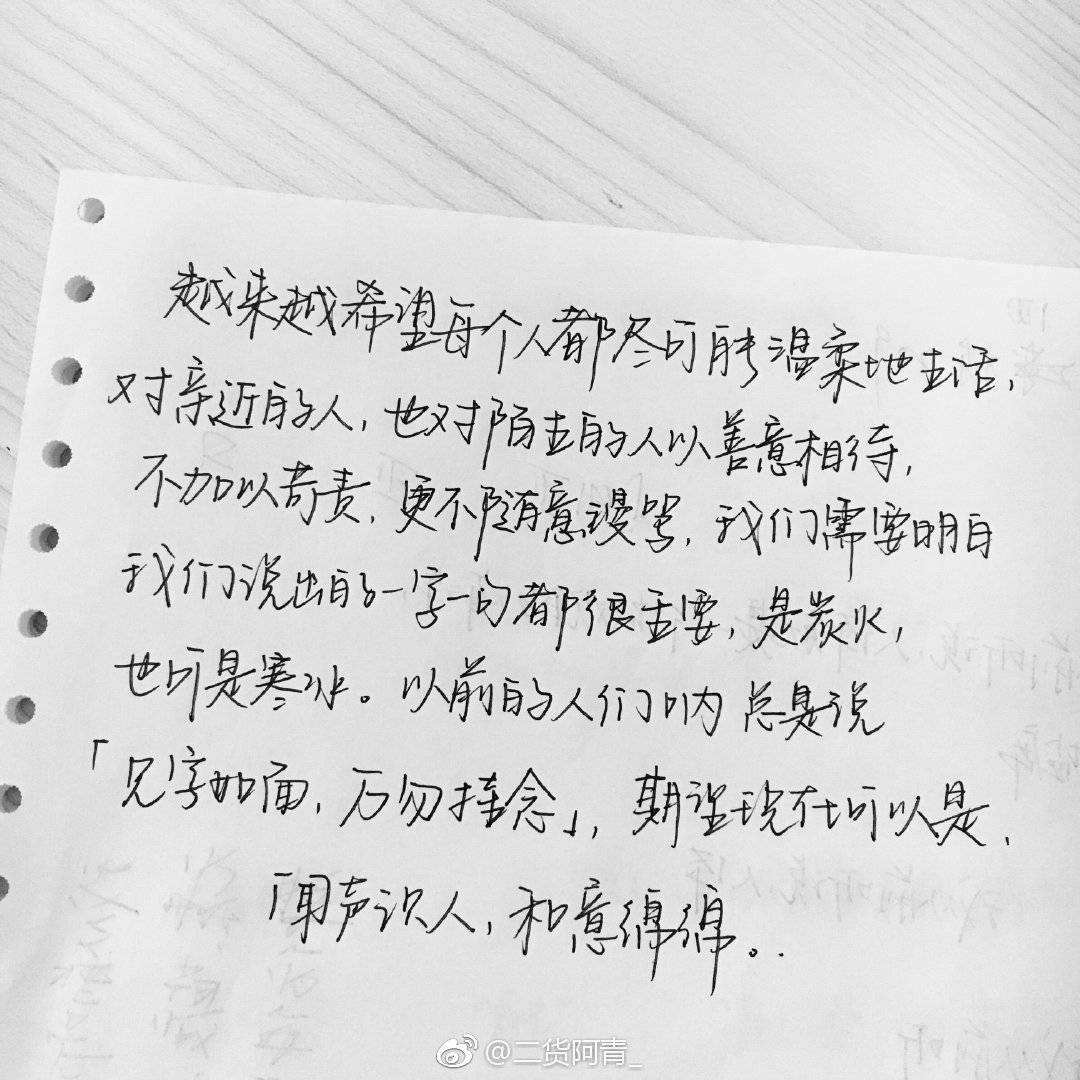 越来越希望每个人都尽可能温柔地生活,
对亲近的人,也对陌生的人以善意相待,
不加以苛责,更不随意谩骂,我们需要明白
我们说出的一字一句都很重要,是炭火,
也可是寒冰。以前的人们 总是说
「见字如面,万勿挂念」,期望现在可以是,
「闻声识人,和意绵绵。
@二货阿青_